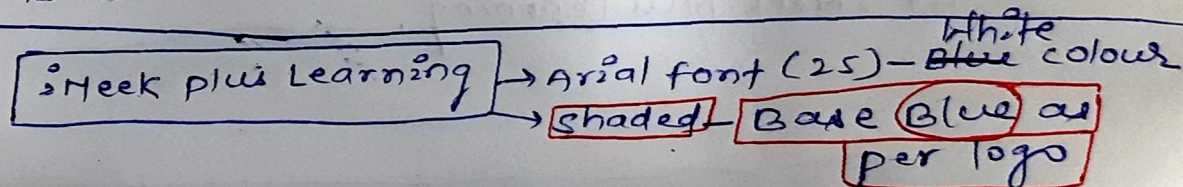 iMeek plus Learning → Arial font (25) - White colour
→ Shaded - Base Blue as
per logo